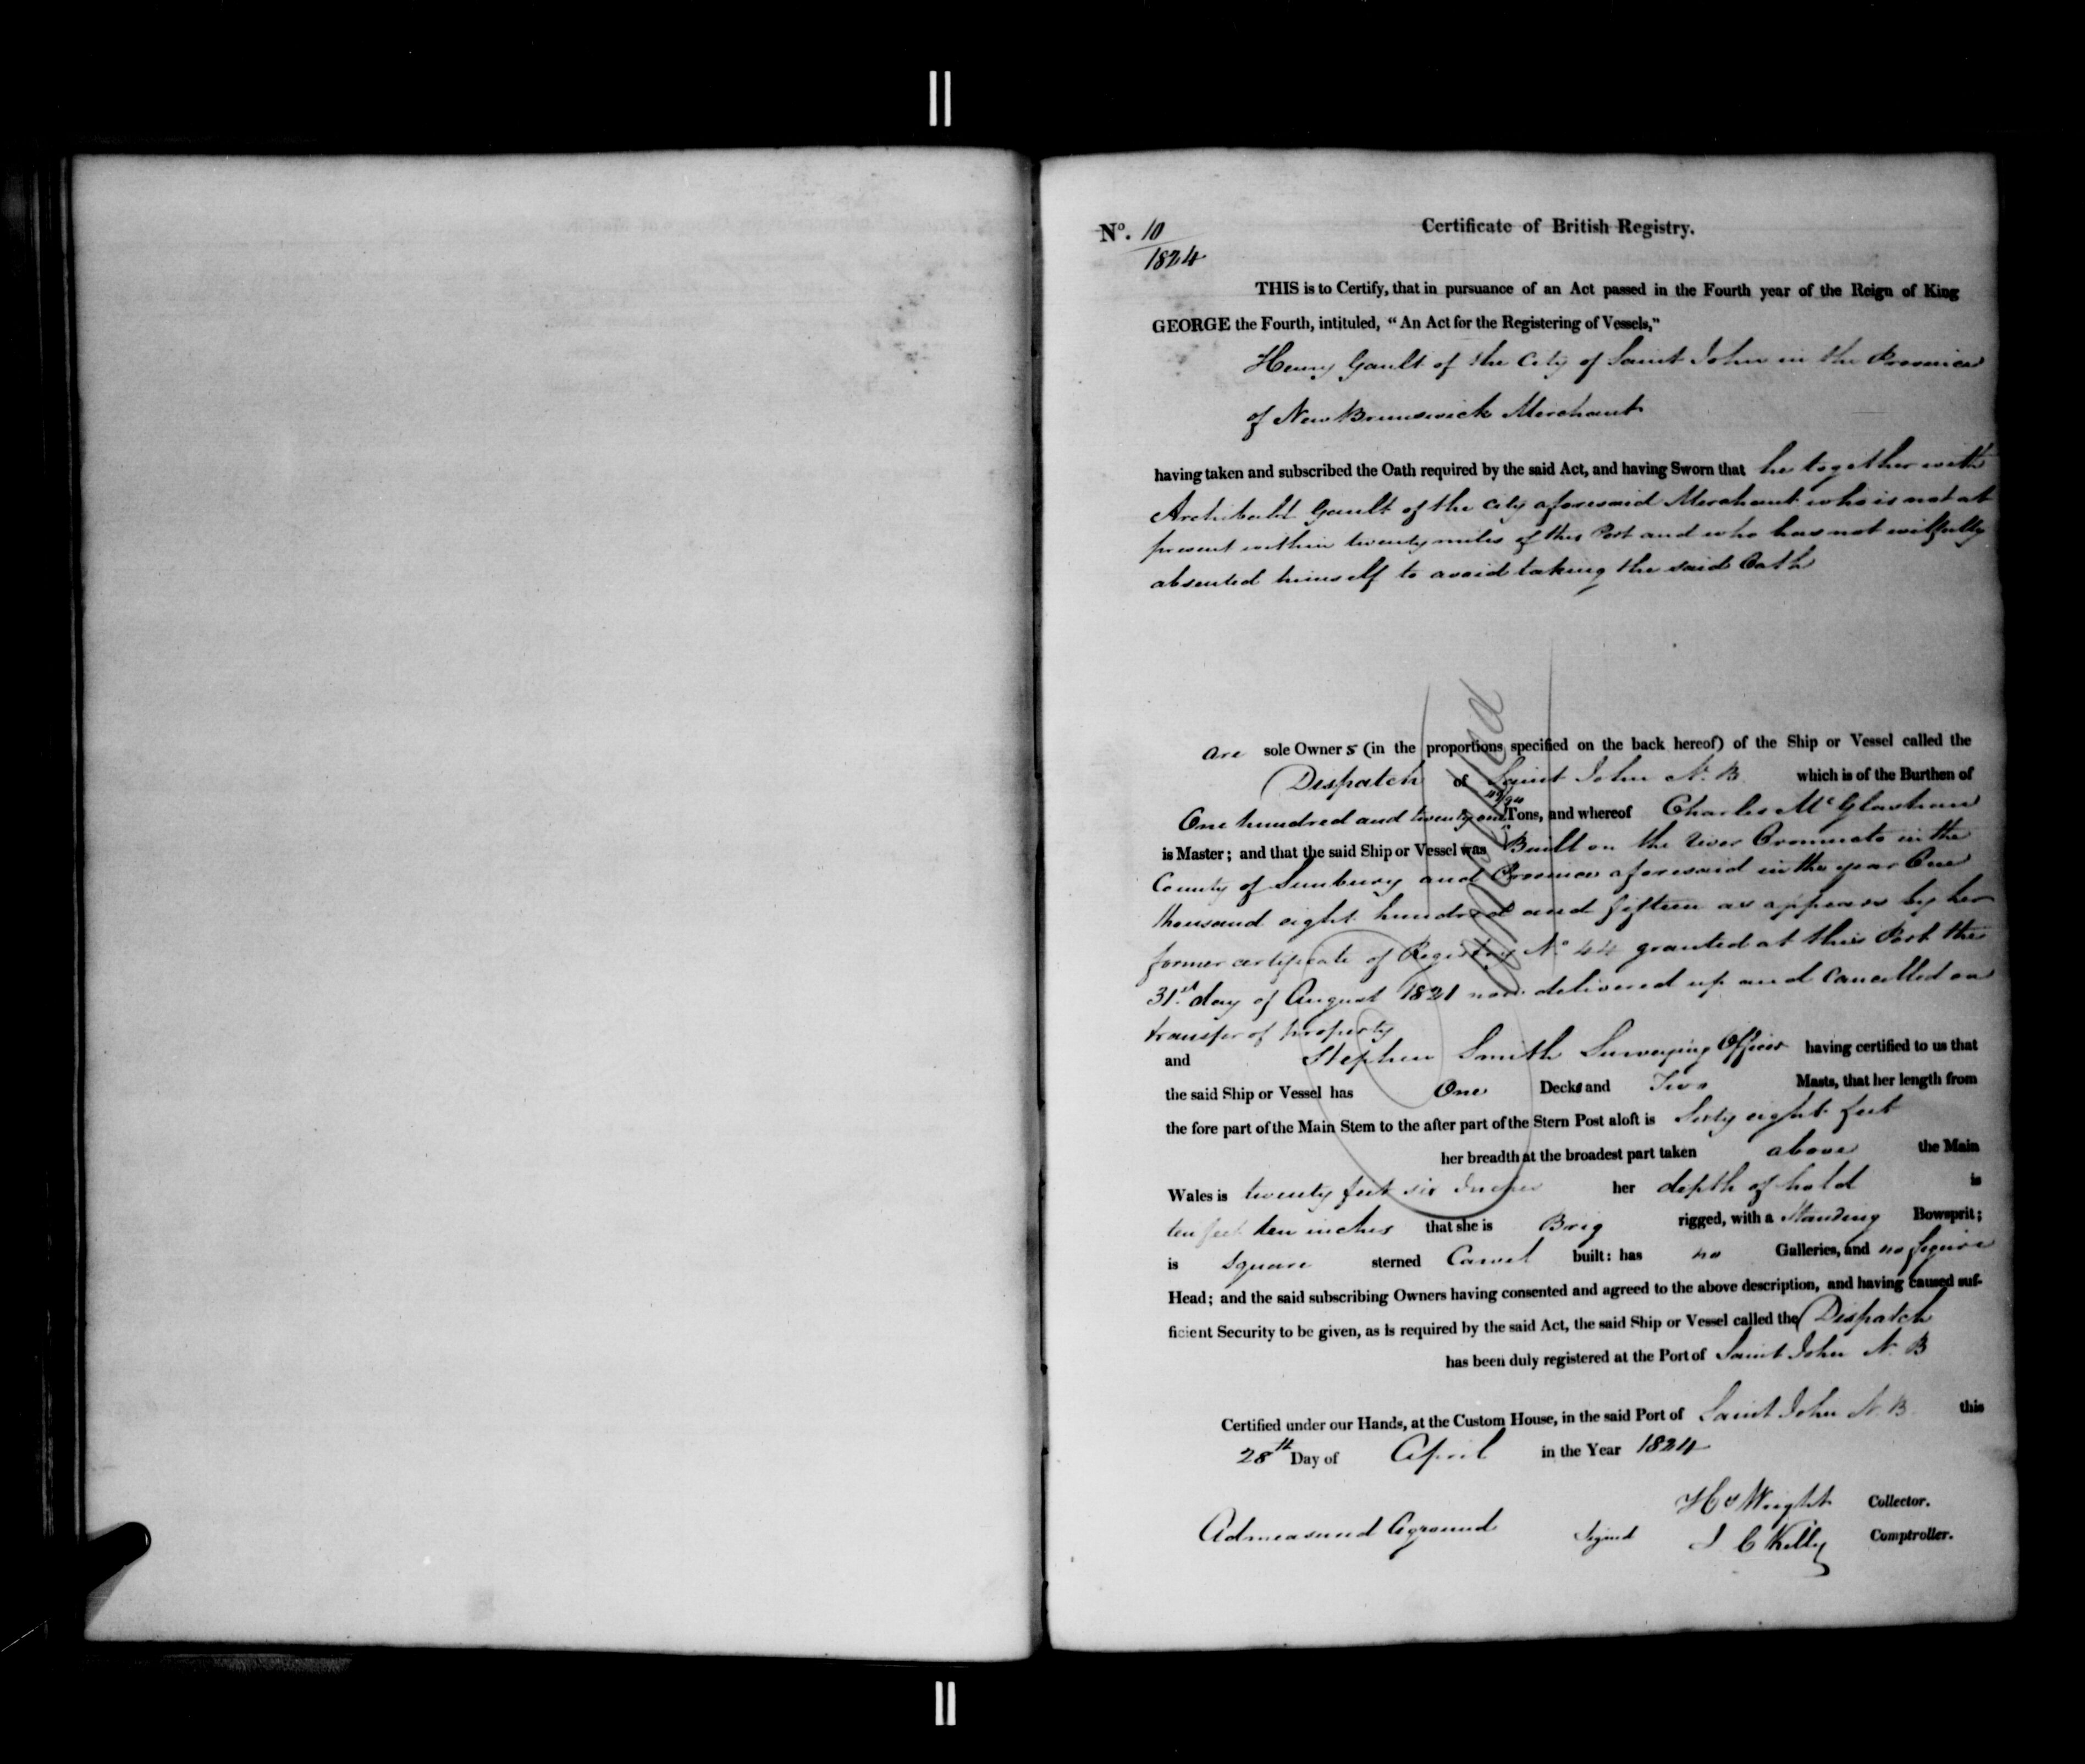 Nº. 10
1824
Certificate of British Registry.
THIS is to Certify, that in pursuance of an Act passed in the Fourth year of the Reign of King
GEORGE the Fourth, intituled, "An Act for the Registering of Vessels,"
Henry Gault of the City of Saint John in the Province
of New Brunswick Merchant
having taken and subscribed the Oath required by the said Act, and having Sworn that he together with
Archibald Gault of the City aforesaid Merchant who is not at
present within twenty miles of this Port and who has not wilfully
absented himself to avoid taking the said Oath
are sole Owners (in the proportions specified on the back hereof) of the Ship or Vessel called the
Dispatch of Saint John N. B. which is of the Burthen of
One hundred and twenty one Tons, and whereof Charles McGlashan
is Master; and that the said Ship or Vessel was Built on the River Oromocto in the
County of Sunbury and Province aforesaid in the year One
thousand eight hundred and fifteen as appears by her
former certificate of Registry No 44 granted at this Port the
31st day of August 1821 now delivered up and Cancelled on
transfer of property
Cancelled
and Stephen Smith Surveying Officer having certified to us that
the said Ship or Vessel has One Deck and Two Masts, that her length from
the fore part of the Main Stem to the after part of the Stern Post aloft is Sixty eight feet
her breadth at the broadest part taken above the Main
Wales is twenty feet six Inches her depth of hold is
ten feet ten inches that she is Brig rigged, with a Standing Bowsprit;
is Square sterned Carvel built: has no Galleries, and no figure
Head; and the said subscribing Owners having consented and agreed to the above description, and having caused suf-
ficient Security to be given, as is required by the said Act, the said Ship or Vessel called the Dispatch
has been duly registered at the Port of Saint John N. B
Certified under our Hands, at the Custom House, in the said Port of Saint John N. B. this
28th Day of April in the Year 1824
H Wright Collector.
Admeasured Aground Signed J C Kelly Comptroller.